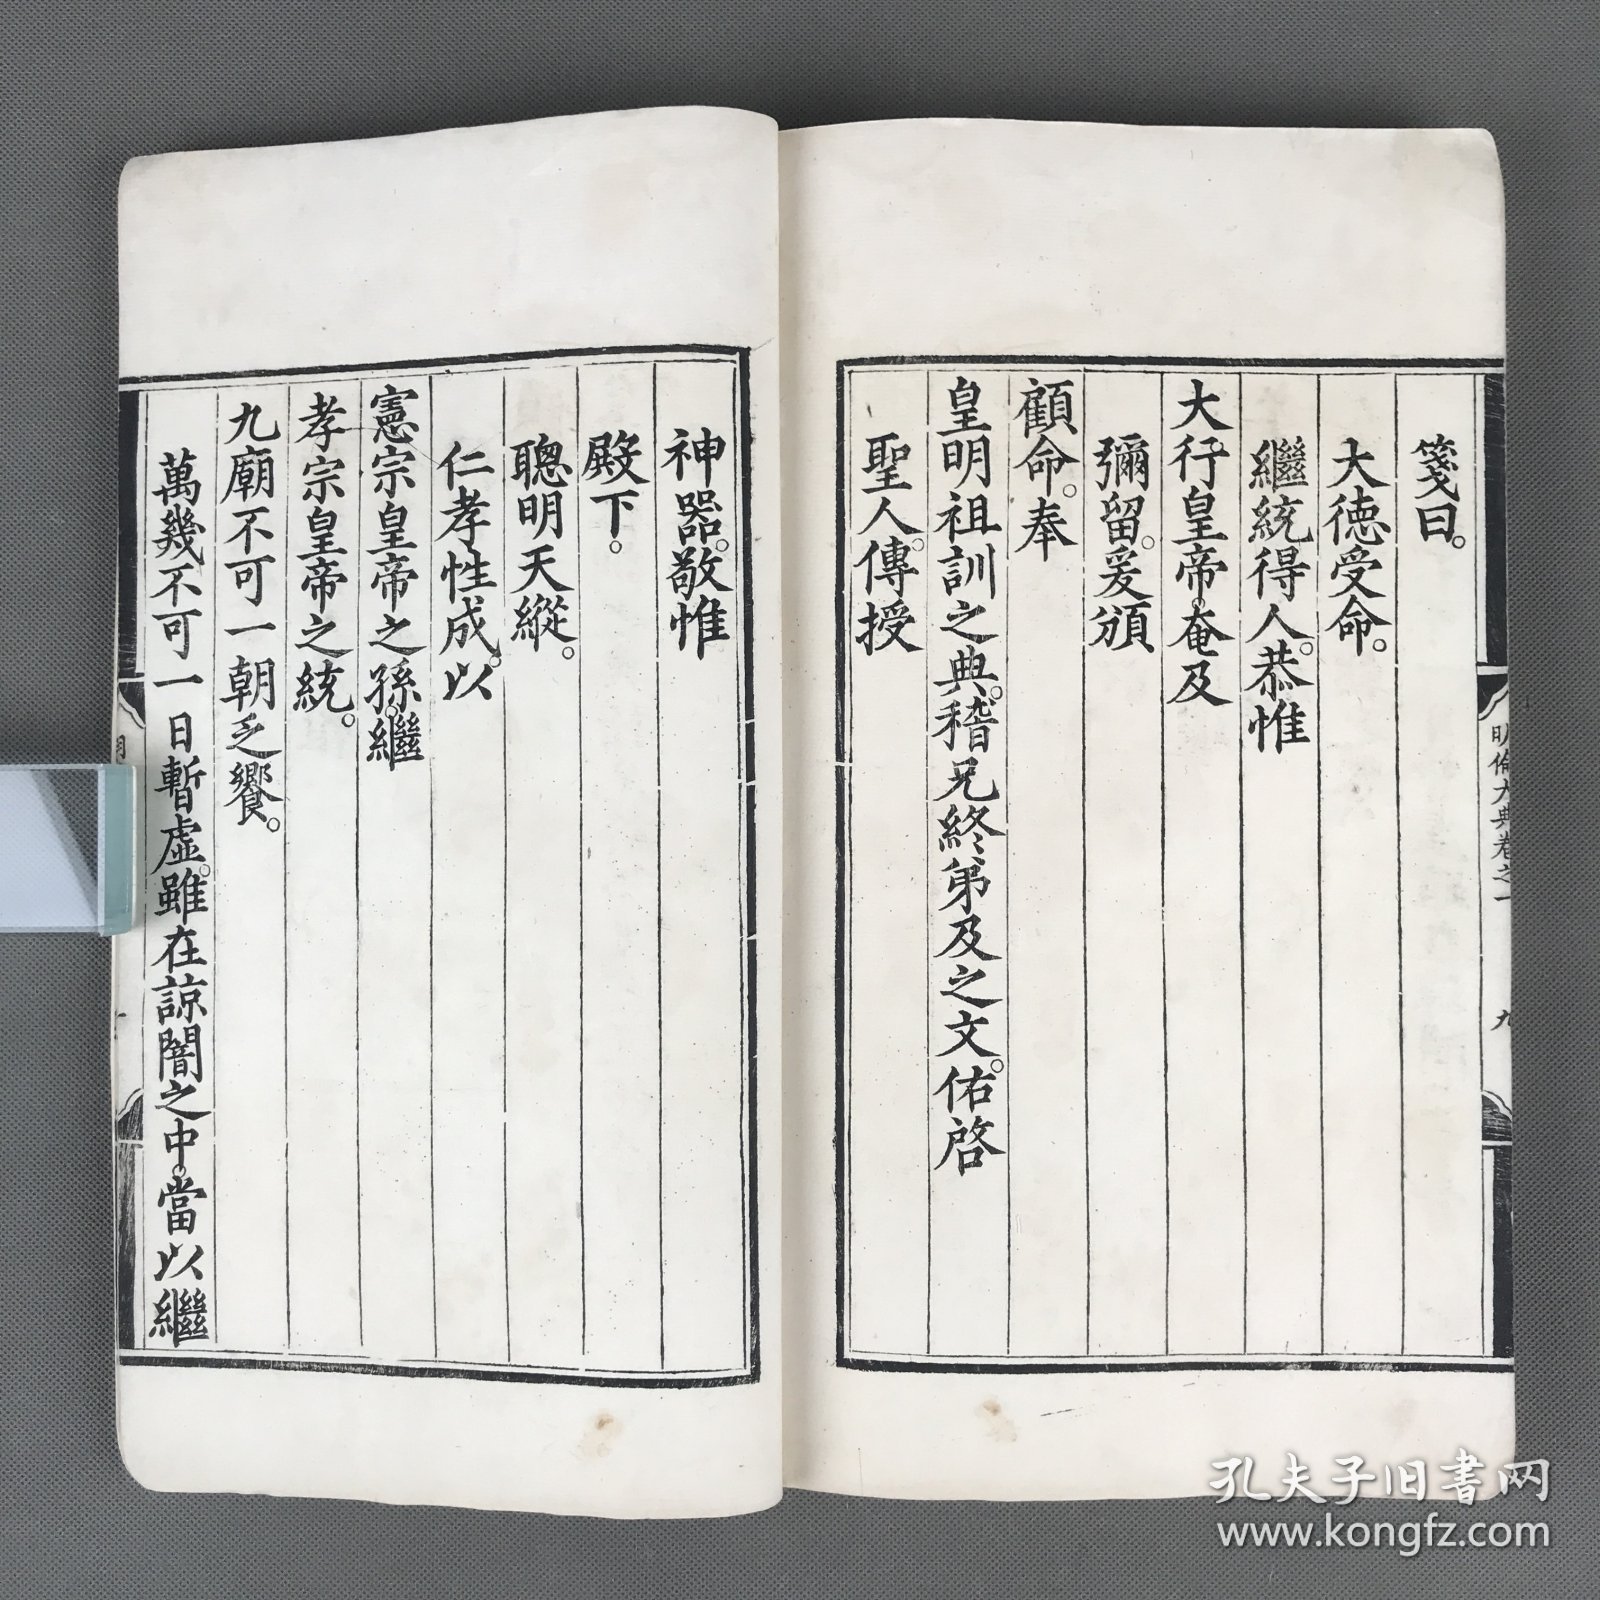 箋曰。
大德受命。
繼統得人。恭惟
大行皇帝。奄及
彌留。爰頒
顧命。奉
皇明祖訓之典。稽兄終弟及之文。佑啓
聖人。傳授
明倫大典卷之一
九
神器。敬惟
殿下。
聰明天縱。
仁孝性成。以
憲宗皇帝之孫。繼
孝宗皇帝之統。
九廟不可一朝乏饗。
萬幾不可一日暫虛。雖在諒闇之中。當以繼
孔夫子旧書网
www.kongfz.com